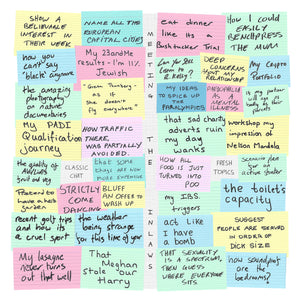 SHOW A
BELIEVABLE
INTEREST IN
THEIR WEEK
NAME ALL THE
EUROPEAN
CAPITAL CITIES
eat dinner
like its a
Bushtucker Trial
How I could
EASILY
BENCHPRESS
THE MUM
how you
can't say
"black" anymore
My 23andMe
results - I'm 1%
Jewish
Can You Still
Listen to
R Kelly?
DEEP
CONCERNS
ABOUT MY
RELATIONSHIP
My Crypto
Portfolio
the amazing
photography
on nature
documentaries
"Greta Thunberg -
I
She doesn't
fly everywhere"
MY IDEAS
TO SPICE UP
THE
PARALYMPICS
AS A
MENTAL
ILLNESS
MEETING THE INLAWS
My PADI
Qualification
journey
HOW TRAFFIC
THERE,
WAS PARTIALLY
AVOIDED.
that sad charity
adverts ruin
my day
wanks
workshop my
impression of
Nelson Mandela
the quality of
CLASSIC
CHIT
that some
dogs are now
more expensive
HOW ALL
FOOD IS
JUST TURNED
INTO POO
FRESH
TOPICS
Pretend to
have a
STRICTLY
COME
DANCING
BLUFF
AN OFFER TO
WASH UP
my IBS
triggers
the toilet's
capacity
recent golf trips
and how its
a cruel sport
the weather
being strange
for this time of year
act like I
have a
bomb
SUGGEST
PEOPLE ARE SERVED
IN ORDER OF
DICK SIZE
My lasagne
never turns
out that well
That
Meghan
stole "our"
Harry
THAT SEXUALITY
IS A SPECTRUM,
THEN GUESS
WHERE EVERYONE
SITS
how soundproof
are the
bedrooms?